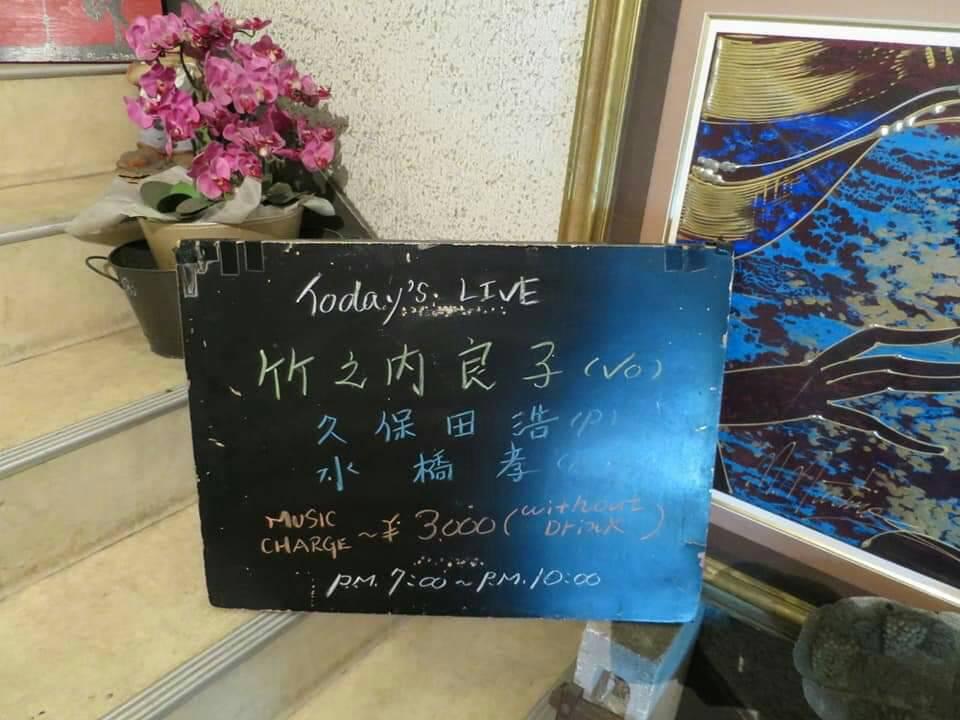 Today's. LIVE
竹之内良子(Vo)
久保田浩(P)
水橋孝
MUSIC CHARGE ~¥3,000 (without Drink)
P.M. 7:00~P.M. 10:00